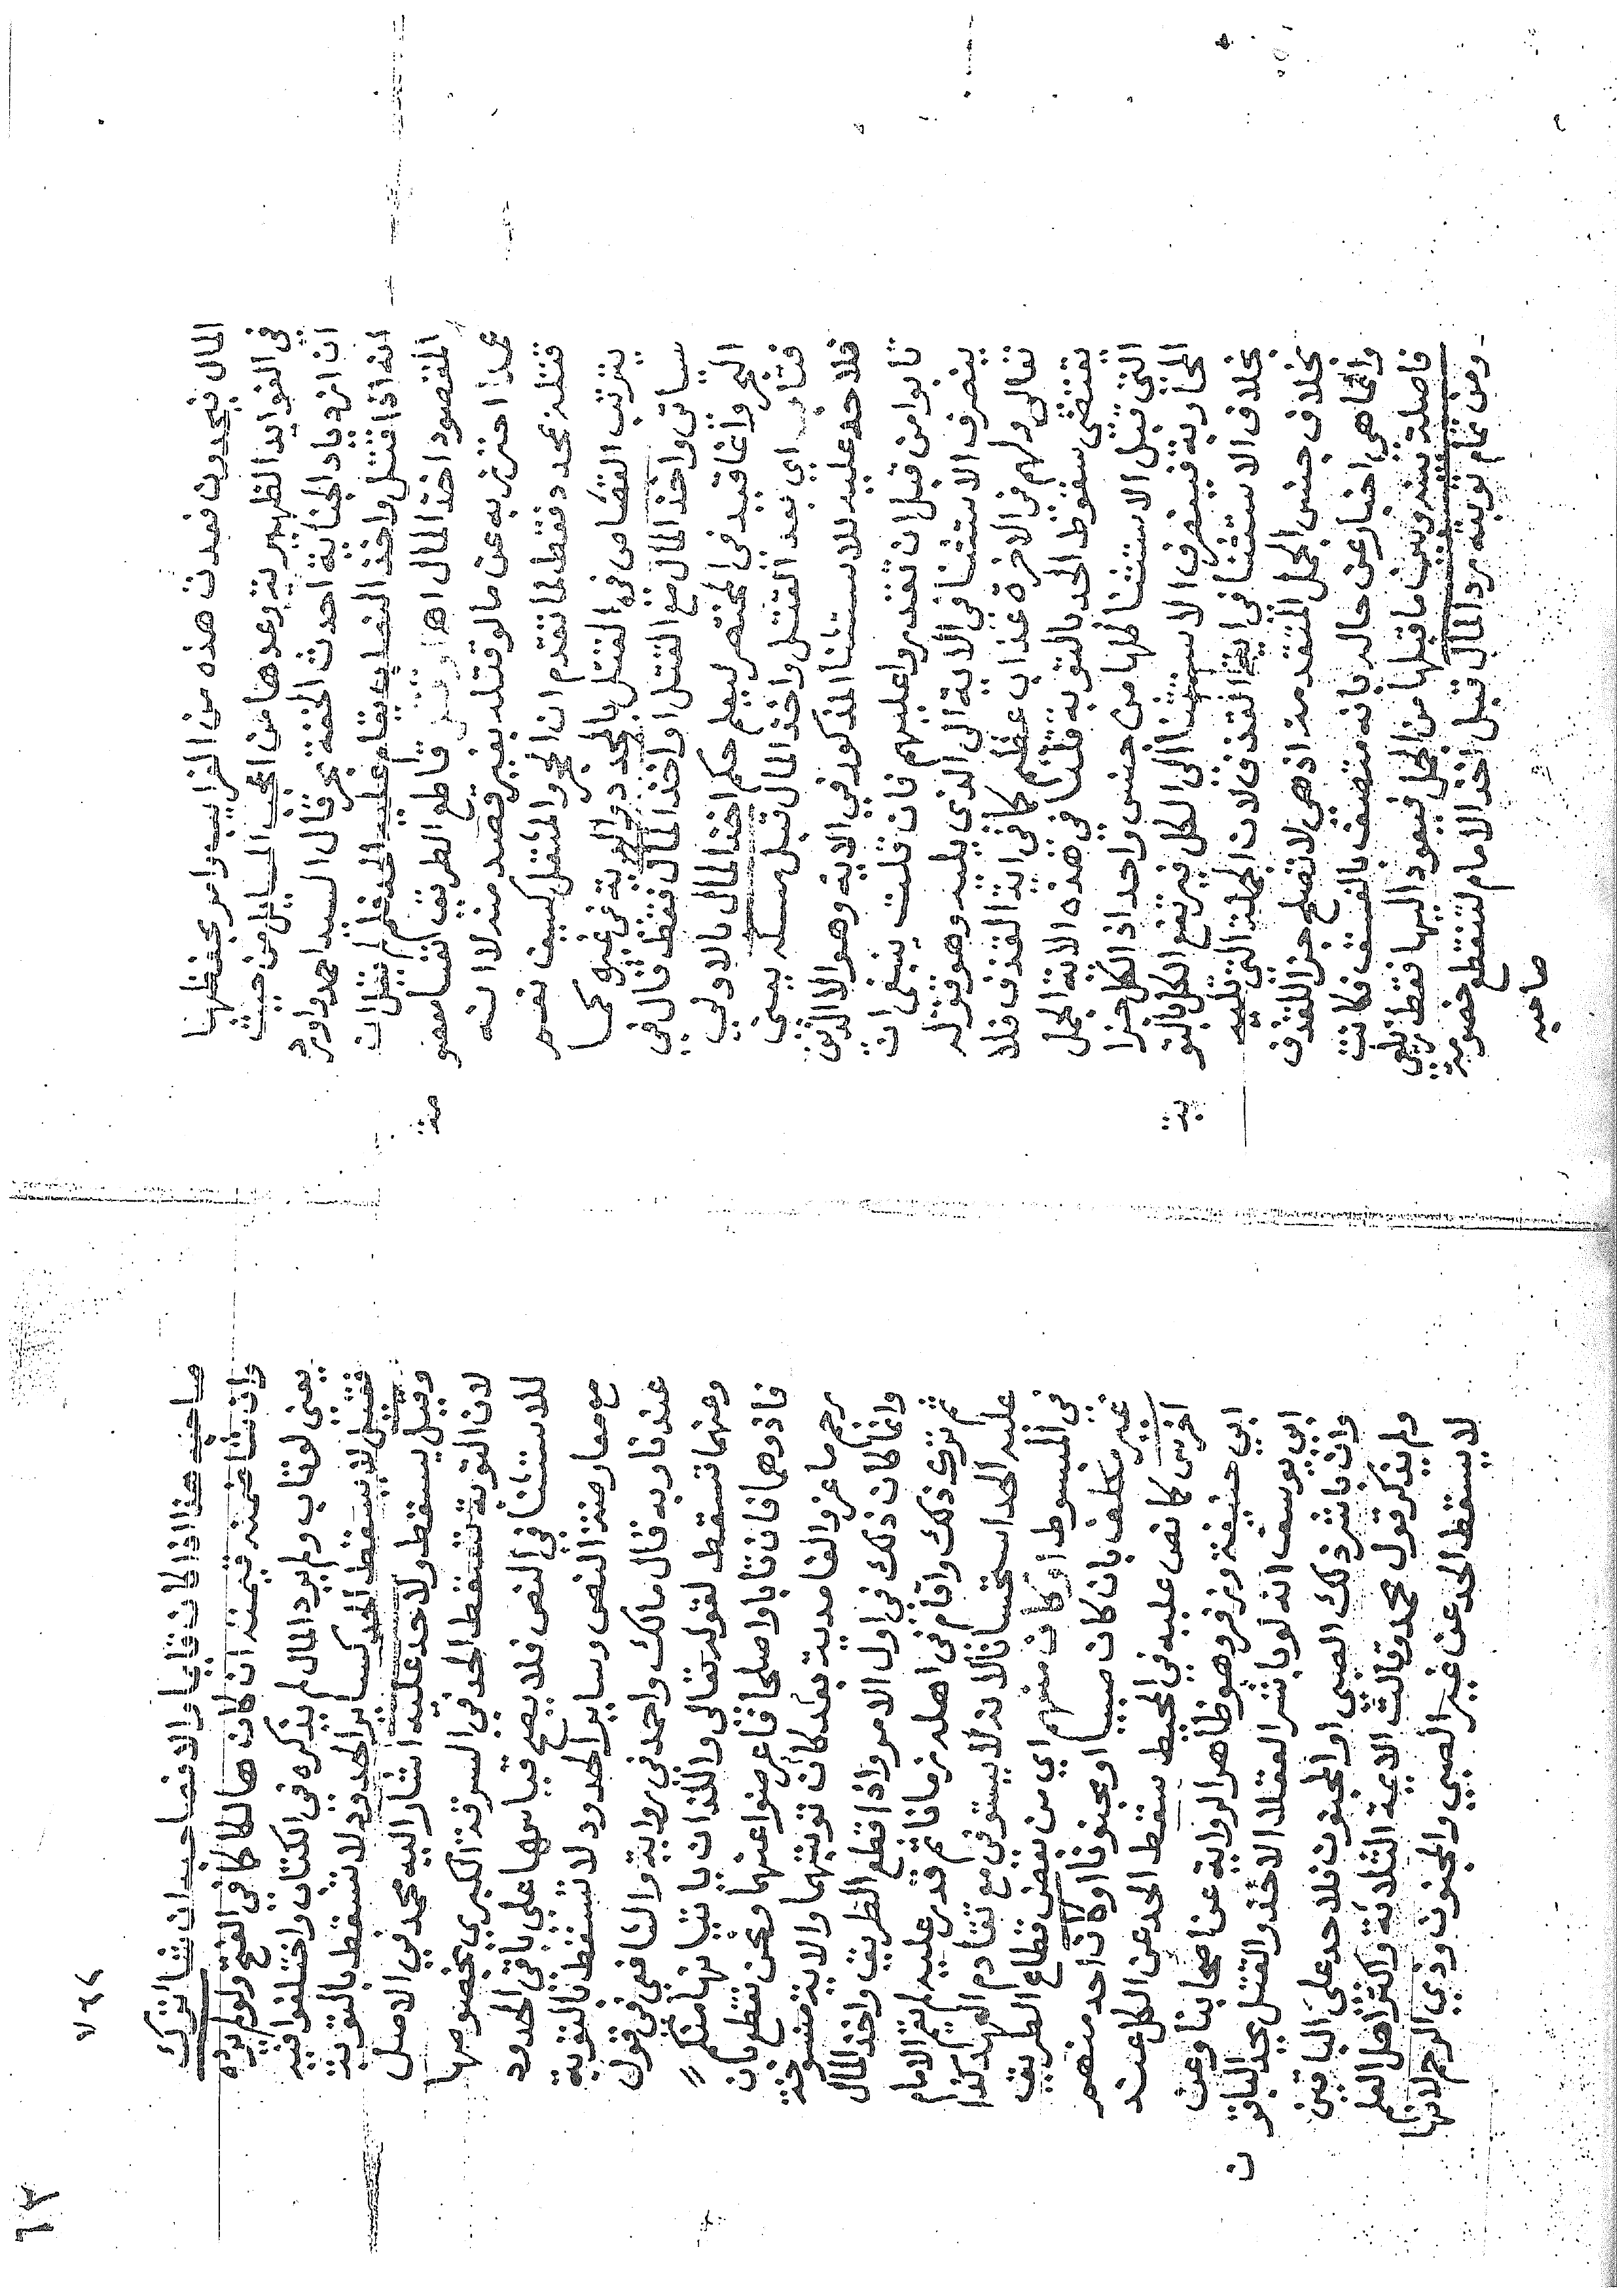 المال فيجدون فعدت هذه من الغرايب وامر بحفظها
في الفوايد الظهيرية وعدها من اعجب المسايل من حيث
ان ازدياد الجناية احدث الخفة نحر قال السيد احمد واورد
انه اذا قتل واخذ النصاب يقام عليه الحد فلم يقل ان
المقصود اخذ المال اهـ او قتل قاطع الطريق نفسا معصو
عمدا احترز به عن ما لو قتله بغير قصد منه لانه
قتله بمحدد فقط لما تقدم ان الحجر والمثقل كسيف نعم
يترتب القصاص في القتل بالمحدد والدية في غيره كما
سياتي واخذ المال مع القتل او اخذ المال فقط قال في
البحر وانما قيد في المختصر ليعلم حكم اخذ المال بالاولي
فتاب اي بعد القتل واخذ المال قبل مسكه يعني
فلا حد عليه للاستثنا المذكور في الاية وهو الا الذين
تابوا من قبل ان تقدروا عليهم فان قلت ينبغي ان
ينصرف الاستثنا في الاية الى الذي يليه وهو قوله
تعالى ولهم في الاخرة عذاب عظيم كما في اية القذف فلا
يقتضي سقوط الحد بالتوبة قلنا في هذه الاية الجمل
التي قبل الاستثنا كلها من جنس واحد اذ الكل جزا
المحاربة فينصرف الاستثنا الى الكل فيرتفع الكل بالتو
بة
بخلاف الاستثنا في اية القذف لان الجملة التي تليه
بخلاف جنس الجمل المتقدمة اذ هي لا تصلح جزا للقذف
وانما هي اخبار عن حاله بانه متصف بالفسق فكانت
فاصلة بين ما قبلها من الجمل فيعود اليها فقط زيلعي
ومن تمام توبته رد المال قبل اخذ الامام لتنقطع خصومة
صاحبه
صاحبه هذا اذا كان قايما والا فصاحبه ان شا ترك
وان شا ضمنه قيمته ان كان هالكا كما في الفتح ولو لم يرده
يعني لو تاب ولم يرد المال لم يذكره في الكتاب واختلفوا فيه
فقيل لا يسقط الحد كساير الحدود لا تسقط بالتوبة
وقيل يسقط ولا حد عليه اشار اليه محمد في الاصل
لان التوبة تسقط الحد في السرقة الكبري بخصوصها
للاستثنا في النص فلا يصح قياسها على باقي الحدود
مع معارضته النص وساير الحدود لا تسقط بالتوبة
عندنا وبه قال مالك واحمد في رواية والشافعي في قول
وعنهما تسقط لقوله تعالى واللذان ياتيانها منكم
فاذوهما فان تابا واصلحا فاعرضوا عنهما ونحن نقطع بان
رجم ماعز والغامدية بعد كان توبتهما والاية منسوخة
وانما كان ذلك في اول الامر واذا قطع الطريق واخذ المال
ثم ترك ذلك واقام في اهله زمانا ثم قدر عليه لم يقم الامام
عليه الحد استحسانا لانه لا يستوفي مع تقادم العهد كذا
في المبسوط او كان منهم اي من بعض قطاع الطريق
غير مكلف بان كان صبيا او مجنونا او كان احد منهم
اخرس كما نص عليه في المحيط سقط الحد عن الكل عند
ابي حنيفة وزفر وهو ظاهر الرواية عن اصحابنا وعن
ابي يوسف انه لو باشر العقلا الاخذ والقتل يحد الباقو
ن
وان باشر ذلك الصبي او المجنون فلا حد على الباقين
ولم يذكر قول محمد وقالت الايمة الثلاثة واكثر اهل العلم
لا يسقط الحد عن غير الصبي والمجنون وذي الرحم لانها